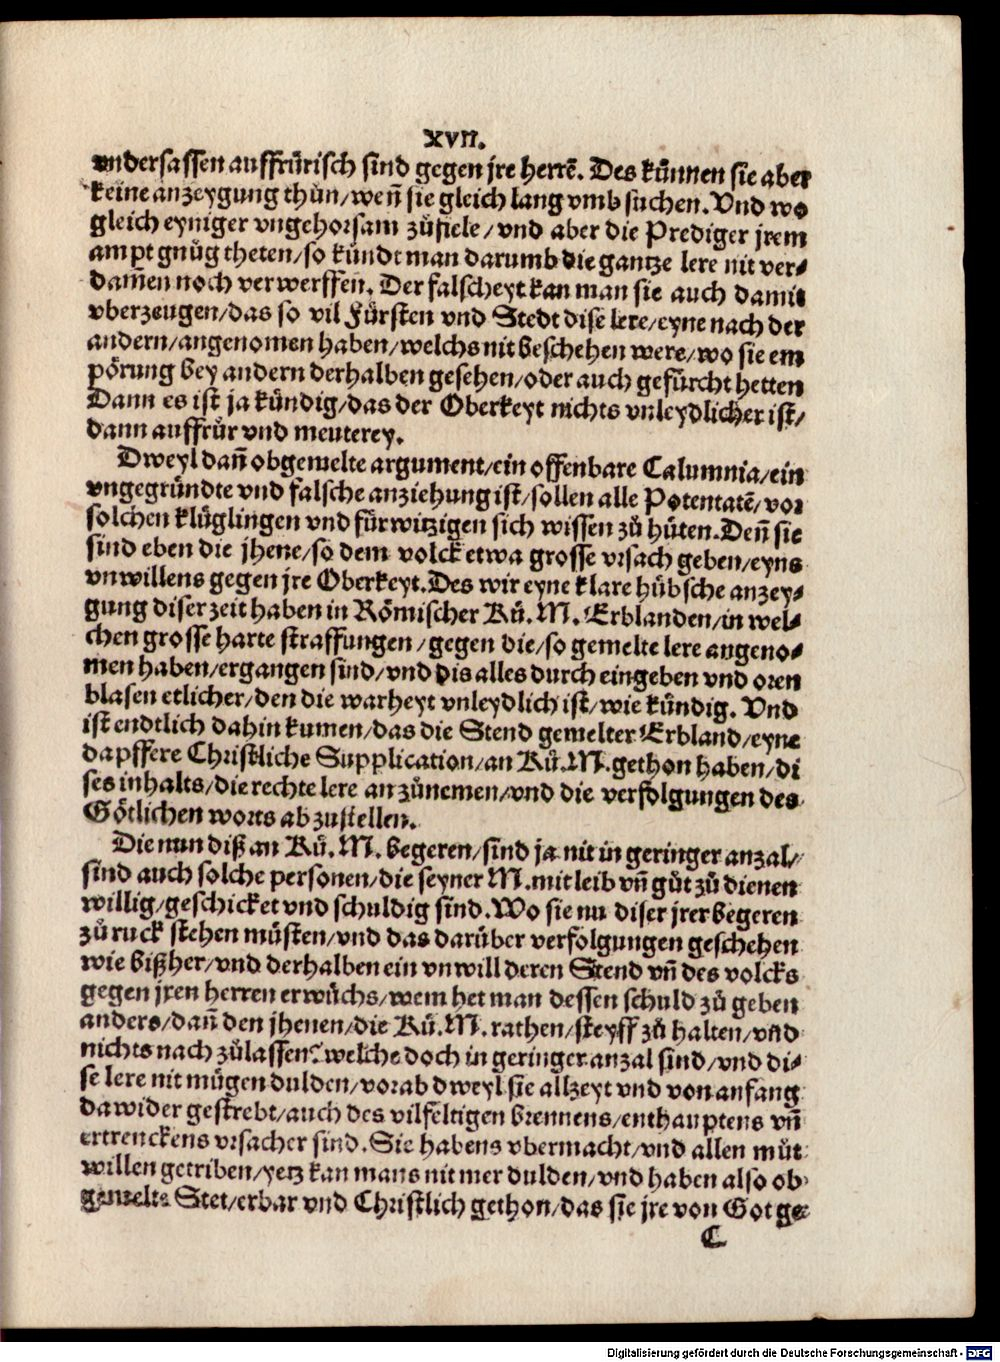 XVII.
vndersassen auffrürisch sind gegen jre herrē. Des künnen sie aber
keine anzeygung thůn/weñ sie gleich lang vmb suchen. Vnd wo
gleich eyniger vngehorsam zůfiele/vnd aber die Prediger jrem
ampt gnůg theten/so kündt man darumb die gantze lere nit ver⸗
dam̄en noch verwerffen. Der falscheyt kan man sie auch damit
vberzeugen/das so vil Fürsten vnd Stedt dise lere/eyne nach der
andern/angenomen haben/welchs nit beschehen were/wo sie em
pörung bey andern derhalben gesehen/oder auch gefürcht hetten
Dann es ist ja kündig/das der Oberkeyt nichts vnleydlicher ist/
dann auffrůr vnd meuterey.
Dweyl dañ obgemelte argument/ein offenbare Calumnia/ein
vngegründte vnd falsche anziehung ist/sollen alle Potentatē/vor
solchen klůglingen vnd fürwitzigen sich wissen zů hüten. Deñ sie
sind eben die jhene/so dem volck etwa grosse vrsach geben/eyns
vnwillens gegen jre Oberkeyt. Des wir eyne klare hübsche anzey⸗
gung diser zeit haben in Römischer Kü. M. Erblanden/in wel⸗
chen grosse harte straffungen/gegen die/so gemelte lere angeno⸗
men haben/ergangen sind/vnd dis alles durch eingeben vnd oren
blasen etlicher/den die warheyt vnleydlich ist/wie kündig. Vnd
ist endtlich dahin kumen/das die Stend gemelter Erbland/eyne
dapffere Christliche Supplication/an Kü. M. gethon haben/di
ses inhalts/die rechte lere anzůnemen/vnd die verfolgungen des
Götlichen worts abzustellen.
Die nun diß an Kü. M. begeren/sind ja nit in geringer anzal/
sind auch solche personen/die seyner M. mit leib vñ gůt zů dienen
willig/geschicket vnd schuldig sind. Wo sie nu diser jrer begeren
zů ruck stehen müsten/vnd das darüber verfolgungen geschehen
wie bißher/vnd derhalben ein vnwill deren Stend vñ des volcks
gegen jren herren erwůchs/wem het man dessen schuld zů geben
anders/dañ den jhenen/die Kü. M. rathen/steyff zů halten/vnd
nichts nach zůlassen? welche doch in geringer anzal sind/vnd di⸗
se lere nit mügen dulden/vorab dweyl sie allzeyt vnd von anfang
dawider gestrebt/auch des vilfeltigen brennens/enthauptens vñ
ertrenckens vrsacher sind. Sie habens vbermacht/vnd allen můt
willen getriben/yetz kan mans nit mer dulden/vnd haben also ob⸗
gemelte Stet/erbar vnd Christlich gethon/das sie jre von Got ge⸗
C
Digitalisierung gefördert durch die Deutsche Forschungsgemeinschaft - DFG